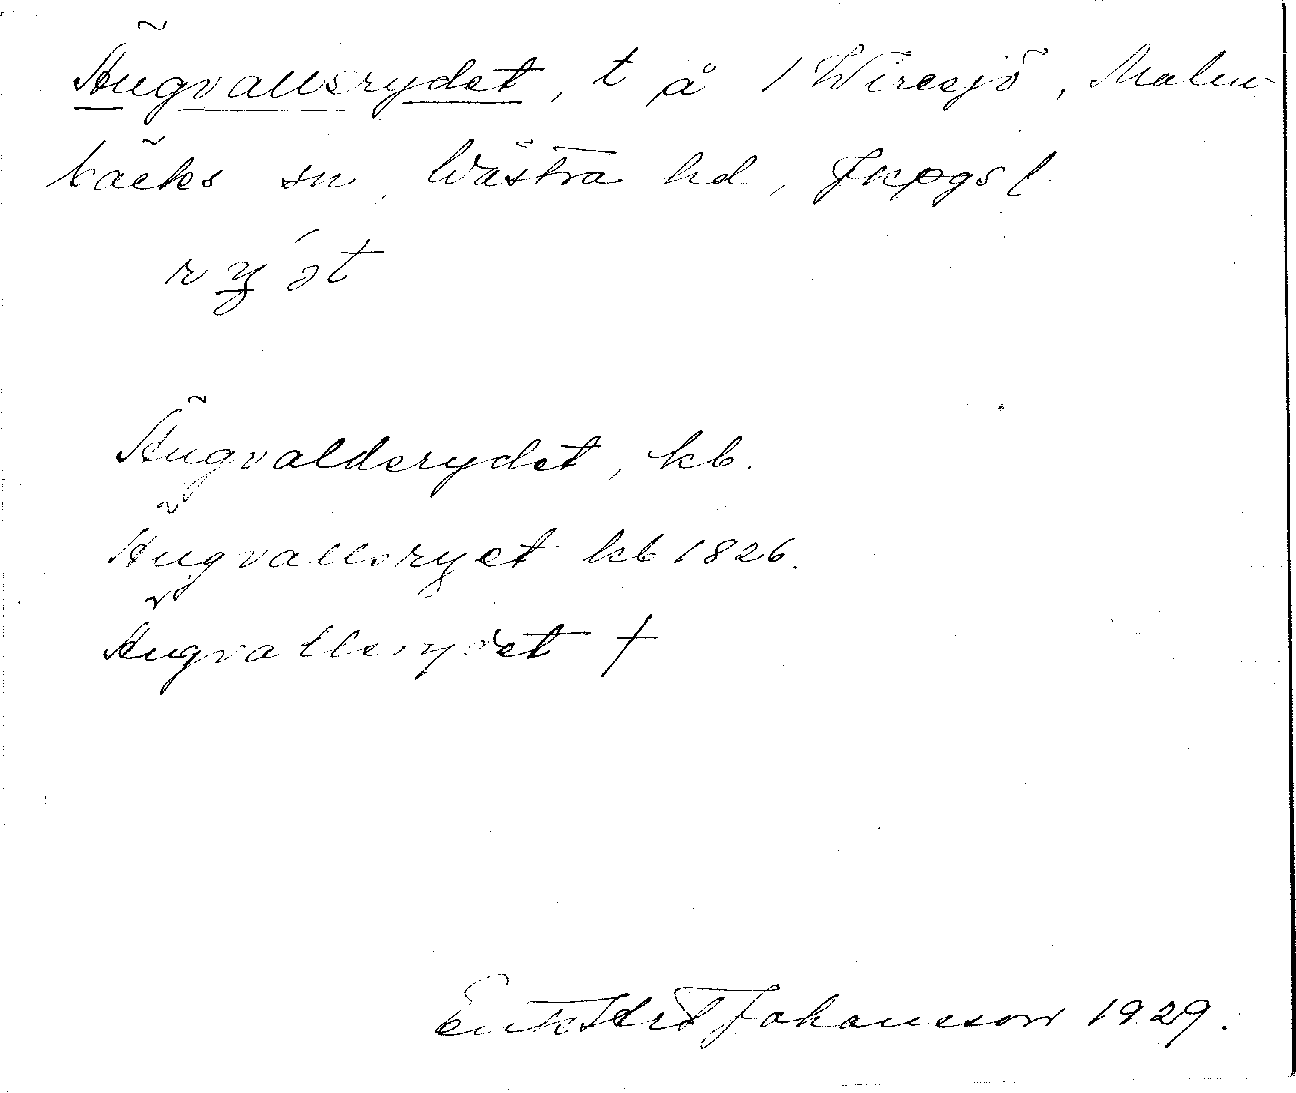 Ängvallsrydet, t å 1 Wiresjö, Malm-
bäcks sn, Västra hd, Jkpgs l
rýət
Ängvaldsrydet, kb.
Ängvallsryet kb 1826.
Ängvallsrydet †
Johansson 1929.